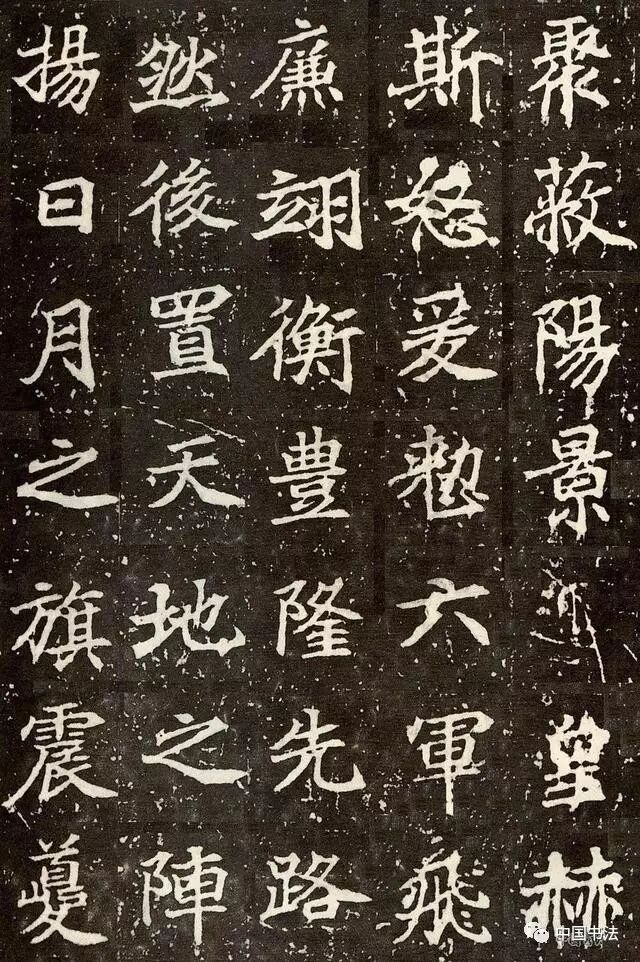 聚蔽陽景皇赫
斯怒爰六軍飛
廉翊衡豐隆先路
然後置天地之陣
揚日月之旗震夔
中国书法